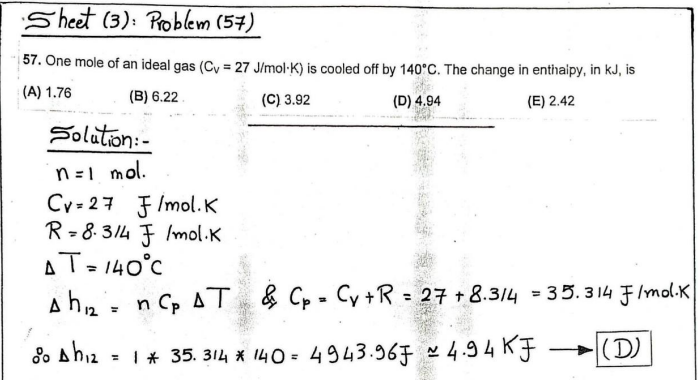 Sheet (3): Problem (57)
57. One mole of an ideal gas (Cv = 27 J/mol·K) is cooled off by 140°C. The change in enthalpy, in kJ, is
(A) 1.76 (B) 6.22 (C) 3.92 (D) 4.94 (E) 2.42
Solution:-
n = 1 mol.
Cv = 27 J/mol.K
R = 8.314 J/mol.K
ΔT = 140°C
Δh12 = n Cp ΔT & Cp = Cv + R = 27 + 8.314 = 35.314 J/mol.K
∴ Δh12 = 1 * 35.314 * 140 = 4943.96J ≃ 4.94 KJ → (D)